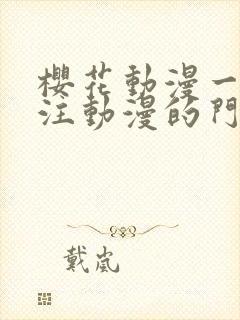 櫻花動漫一
注動漫的門
戴嵐